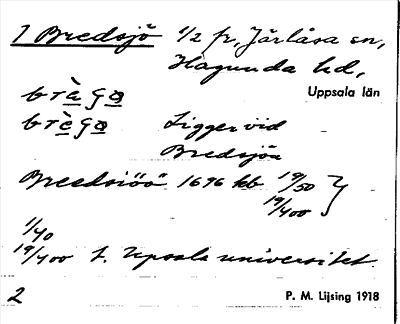 1 Bredsjö 1/2 fr, Järlåsa sn,
Hagunda hd,
Uppsala län
brèga
brèga Ligger vid
Bredsjön
Breedsiöö 1696 kb 19/50 }
19/400
1/40
19/400 t. Upsala universitet.
2 P. M. Lijsing 1918